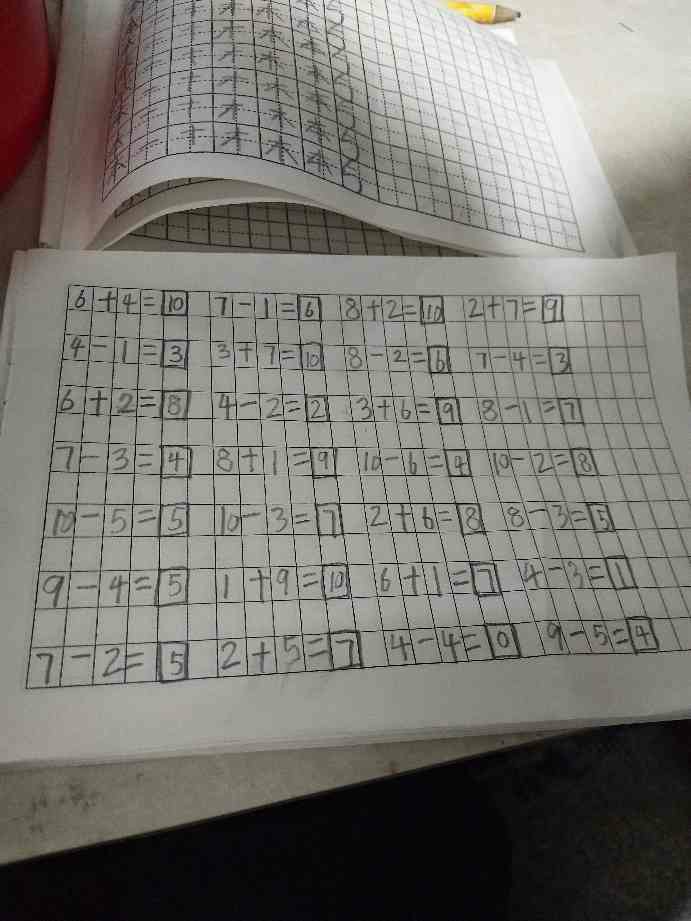 十 木 木 木
十 木 木 木
十 木 木 木
十 木 木 木
十 木 木 木
十 木 木 木
6+4=10 7-1=6 8+2=10 2+7=9
4-1=3 3+7=10 8-2=6 7-4=3
6+2=8 4-2=2 3+6=9 8-1=7
7-3=4 8+1=9 10-6=4 10-2=8
10-5=5 10-3=7 2+6=8 8-3=5
9-4=5 1+9=10 6+1=7 4-3=1
7-2=5 2+5=7 4-4=0 9-5=4